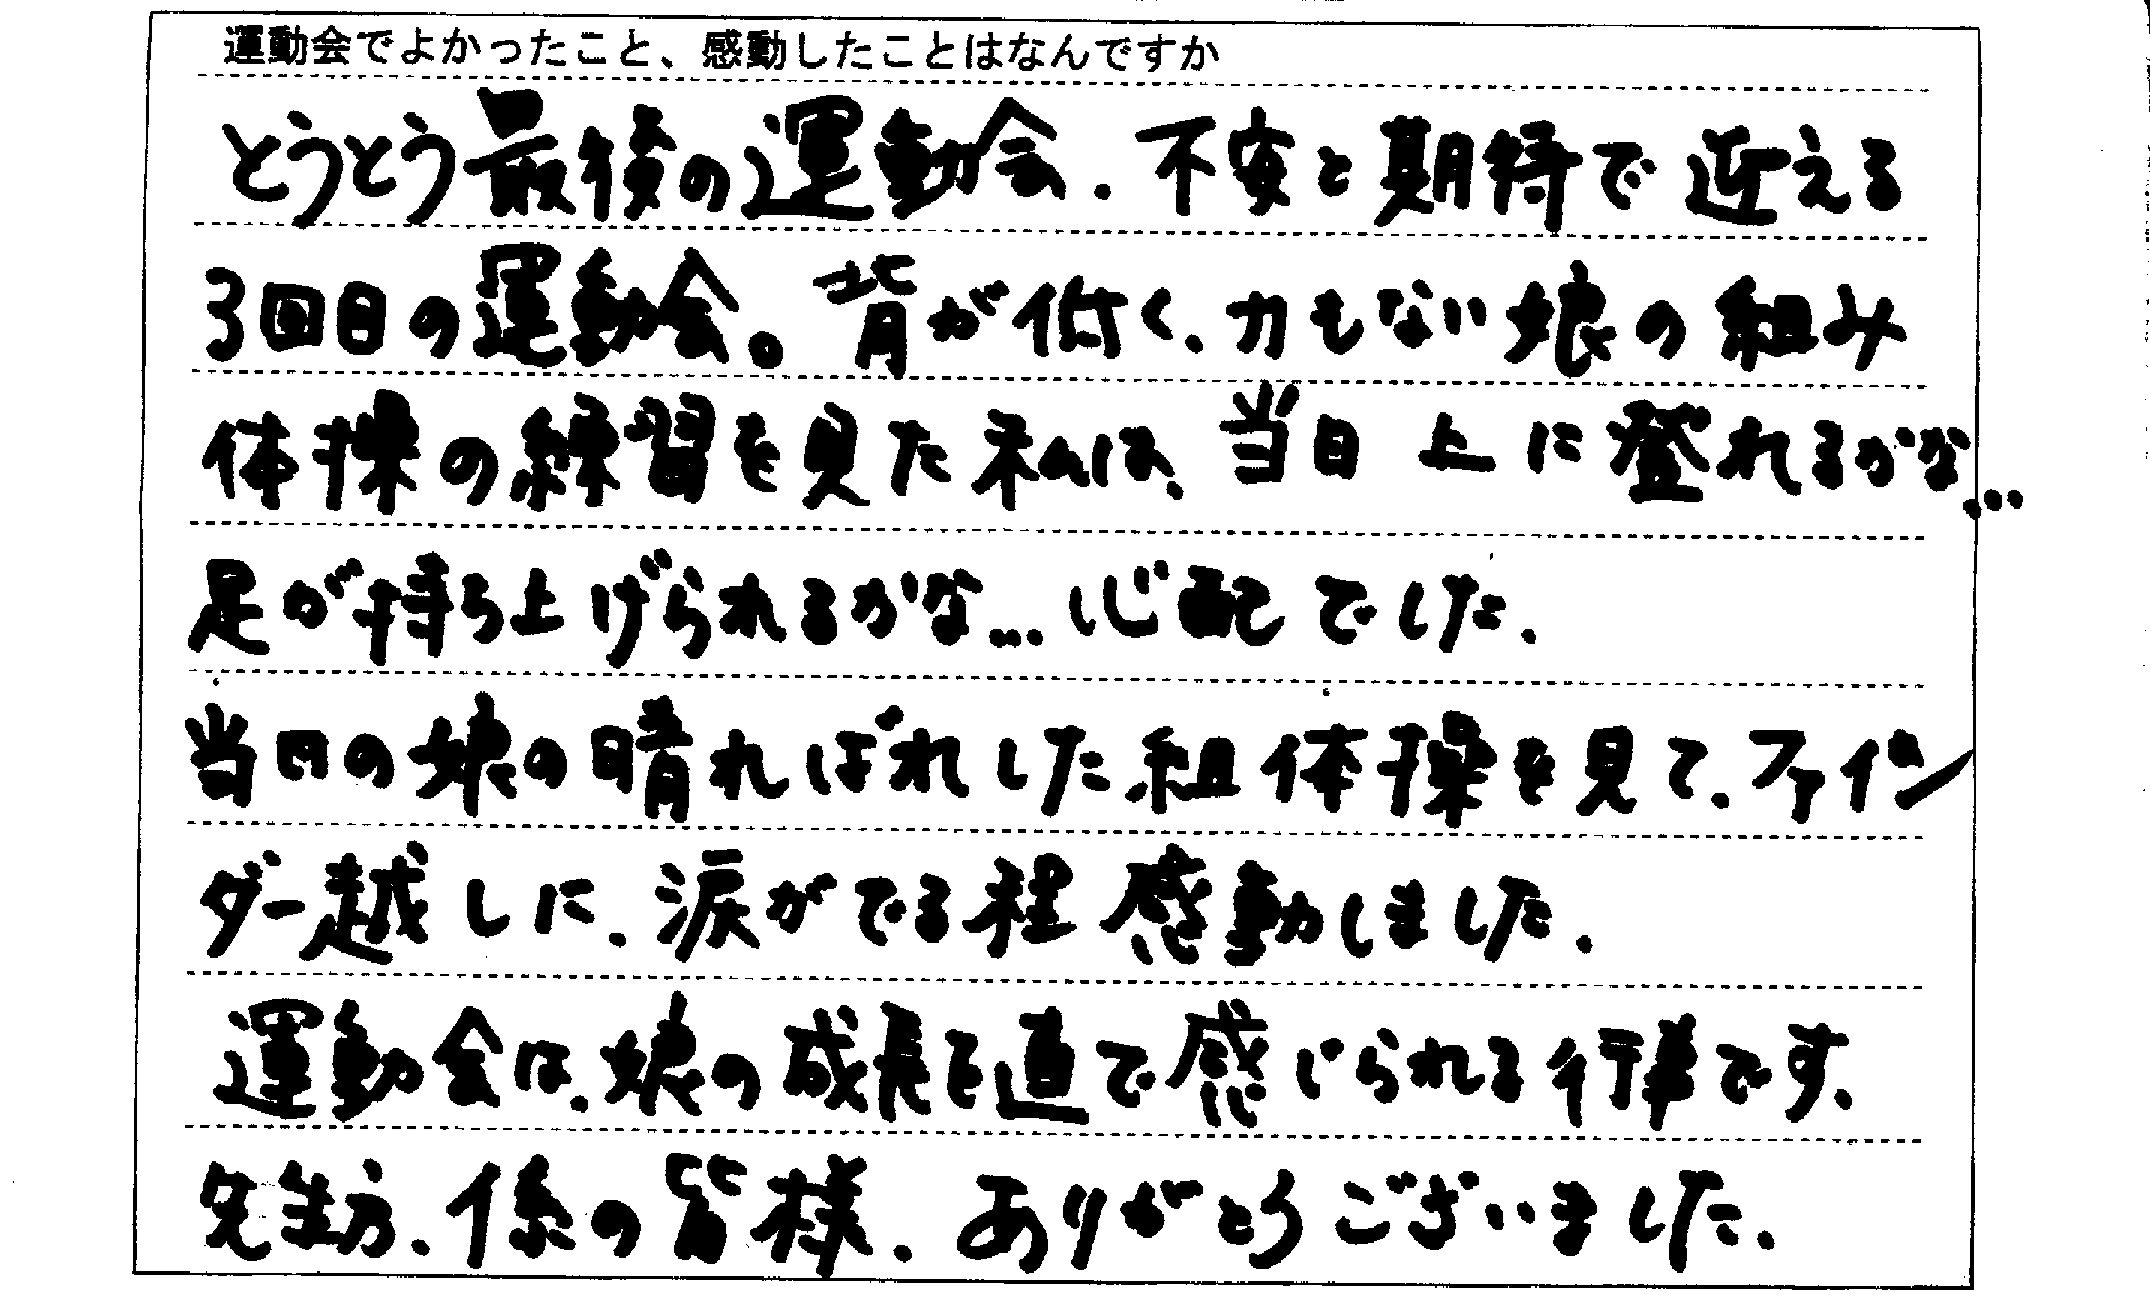 運動会でよかったこと、感動したことはなんですか
とうとう最後の運動会．不安と期待で迎える
3回目の運動会。背が低く、力もない娘の組み
体操の練習を見た私は、当日上に登れるかな…
足が持ち上げられるかな…心配でした．
当日の娘の晴ればれした組体操を見て、ファイン
ダー越しに、涙がでる程感動しました．
運動会は、娘の成長を直で感じられる行事です、
先生方、係の皆様、ありがとうございました．